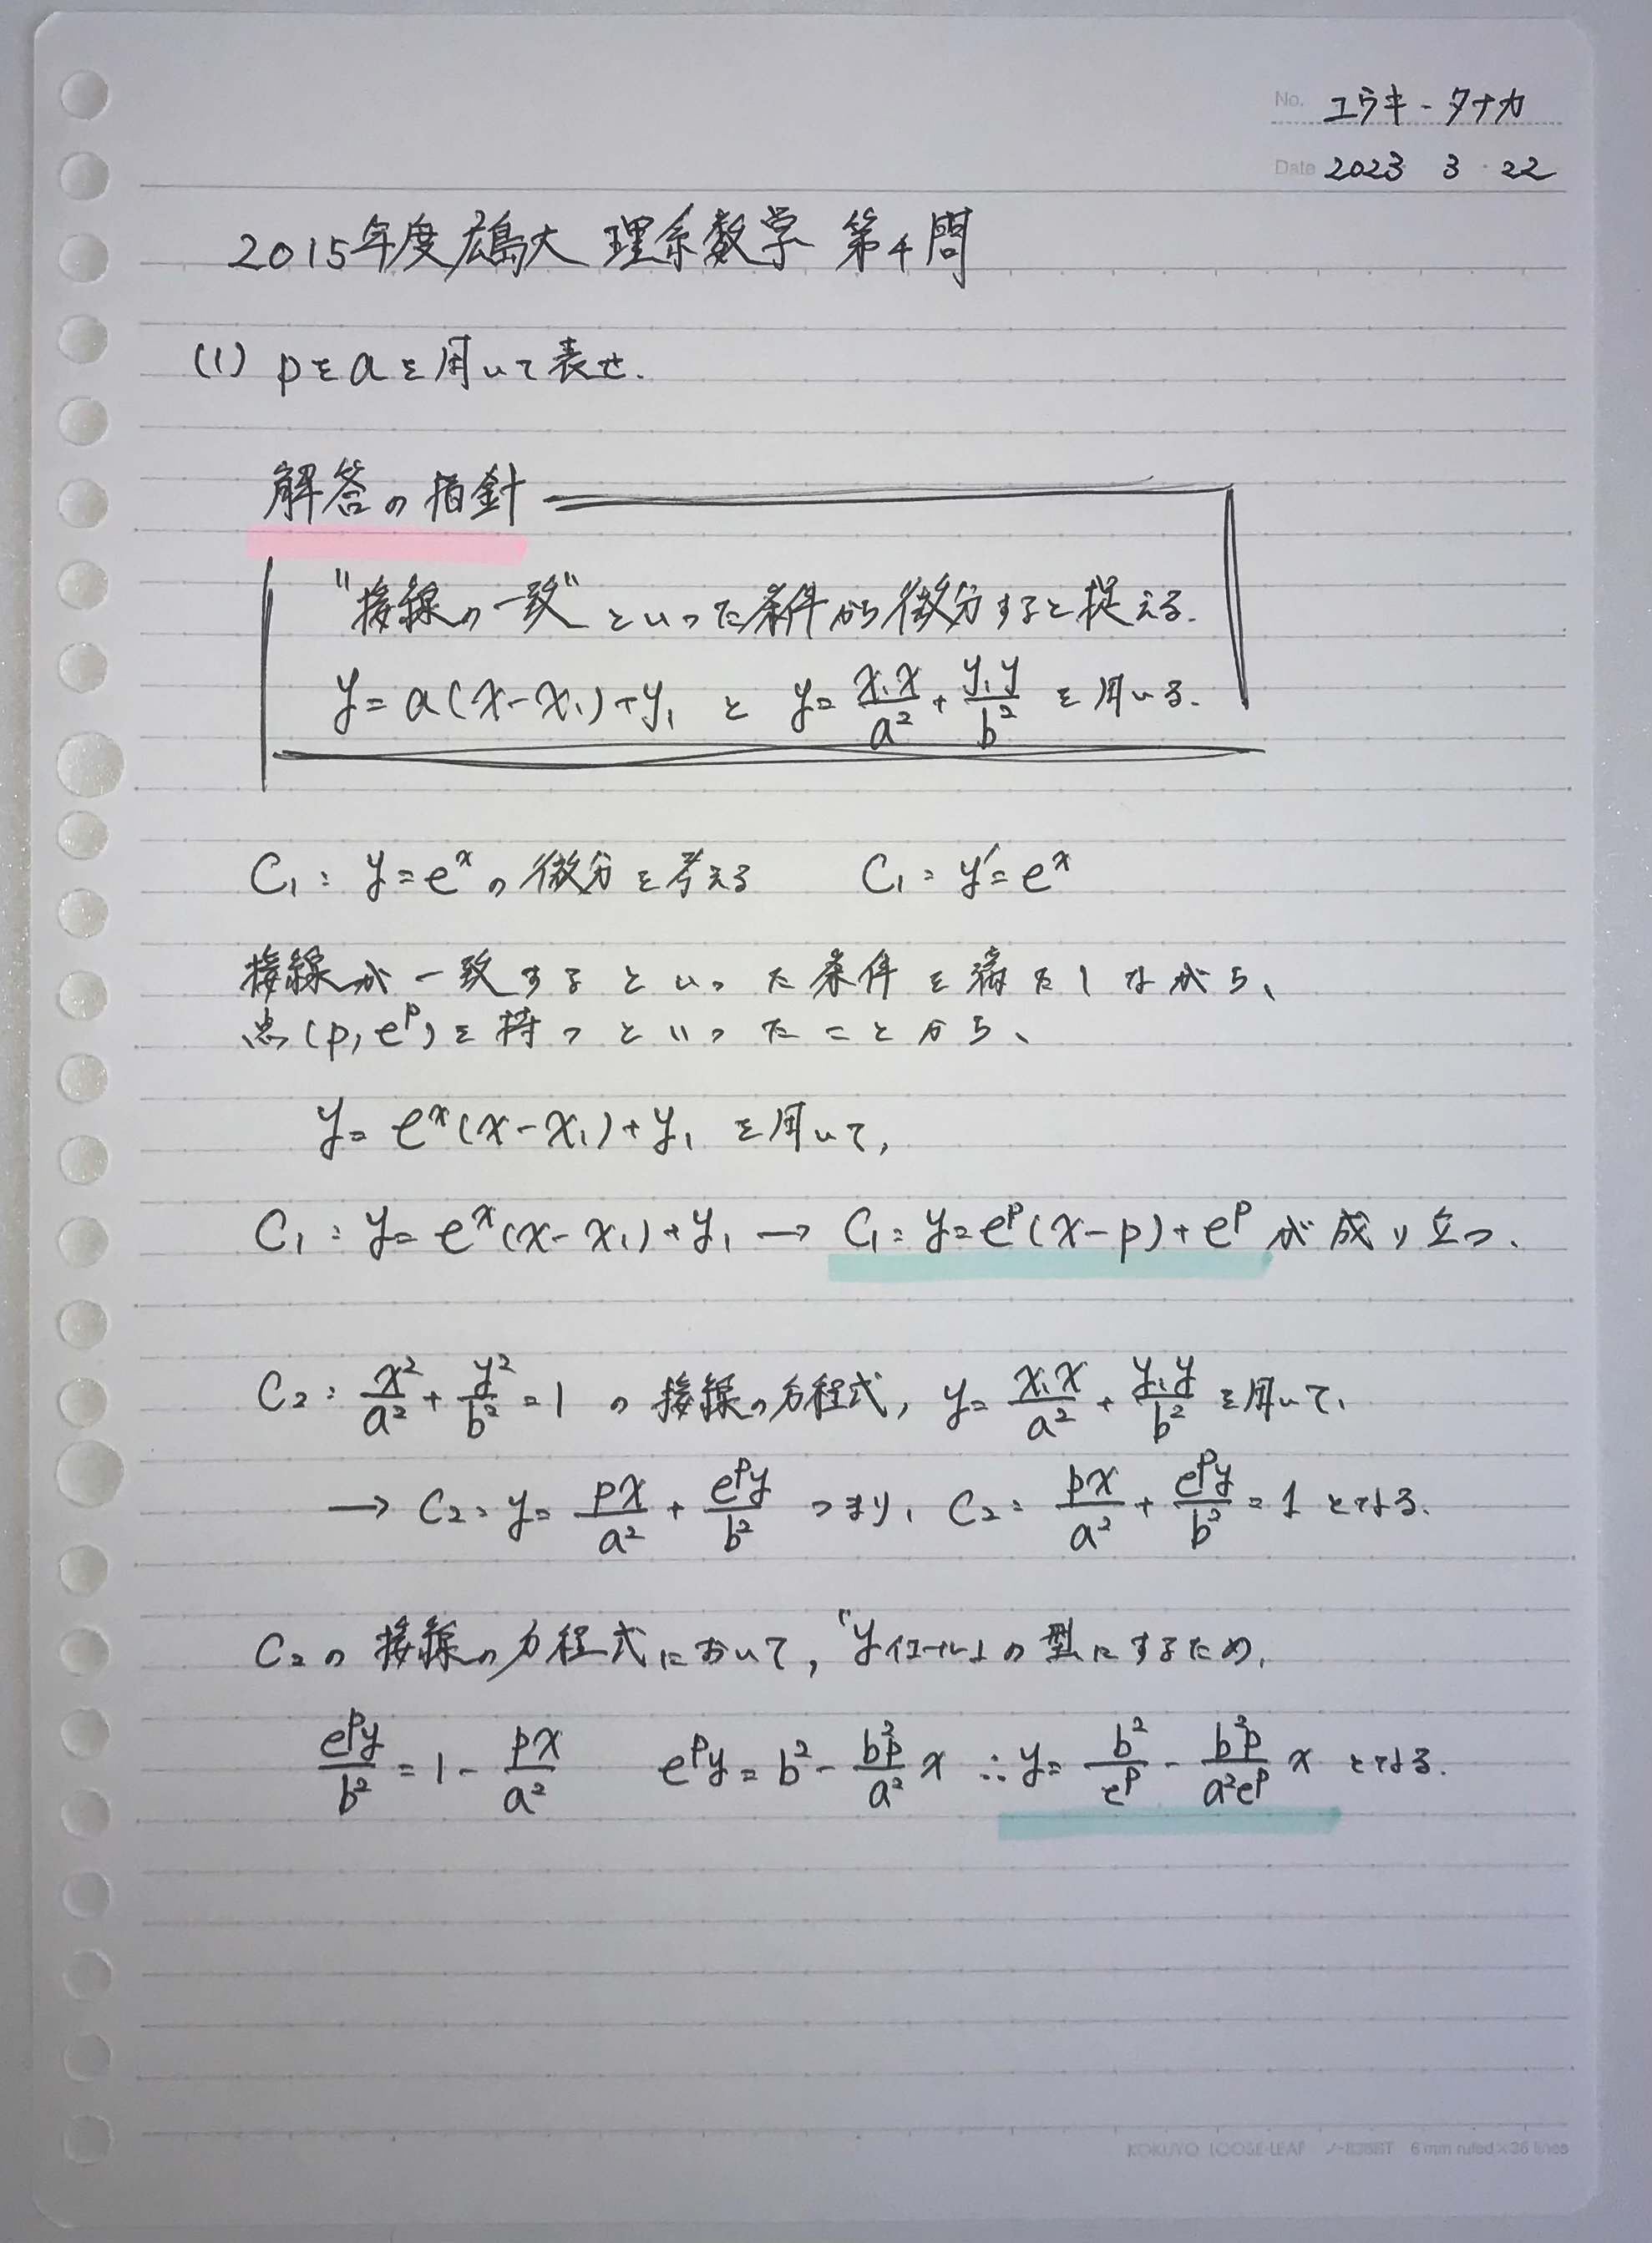 No. ユウキ-タナカ
Date 2023 3・22
2015年度広島大 理系数学 第4問
(1) pをaを用いて表せ.
解答の指針
"接線の一致"といった条件から微分すると捉える.
y=a(x-x₁)+y₁ と y=x₁x/a²+y₁y/b² を用いる.
C₁: y=eˣの微分を考える C₁: y'=eˣ
接線が一致するといった条件を満たしながら、
点(p,eᵖ)を持つといったことから、
y=eˣ(x-x₁)+y₁ を用いて,
C₁: y=eˣ(x-x₁)+y₁ → C₁: y=eᵖ(x-p)+eᵖ が成り立つ.
C₂: x²/a²+y²/b²=1 の接線の方程式, y=x₁x/a²+y₁y/b² を用いて,
→ C₂: y=px/a²+eᵖy/b² つまり, C₂: px/a²+eᵖy/b²=1 となる.
C₂の接線の方程式において,「yイコール」の型にするため,
eᵖy/b²=1-px/a² eᵖy=b²-b²p/a² x ∴y=b²/eᵖ-b²p/a²eᵖ x となる.
KOKUYO LOOSE-LEAF ノ-836BT 6 mm ruled×36 lines